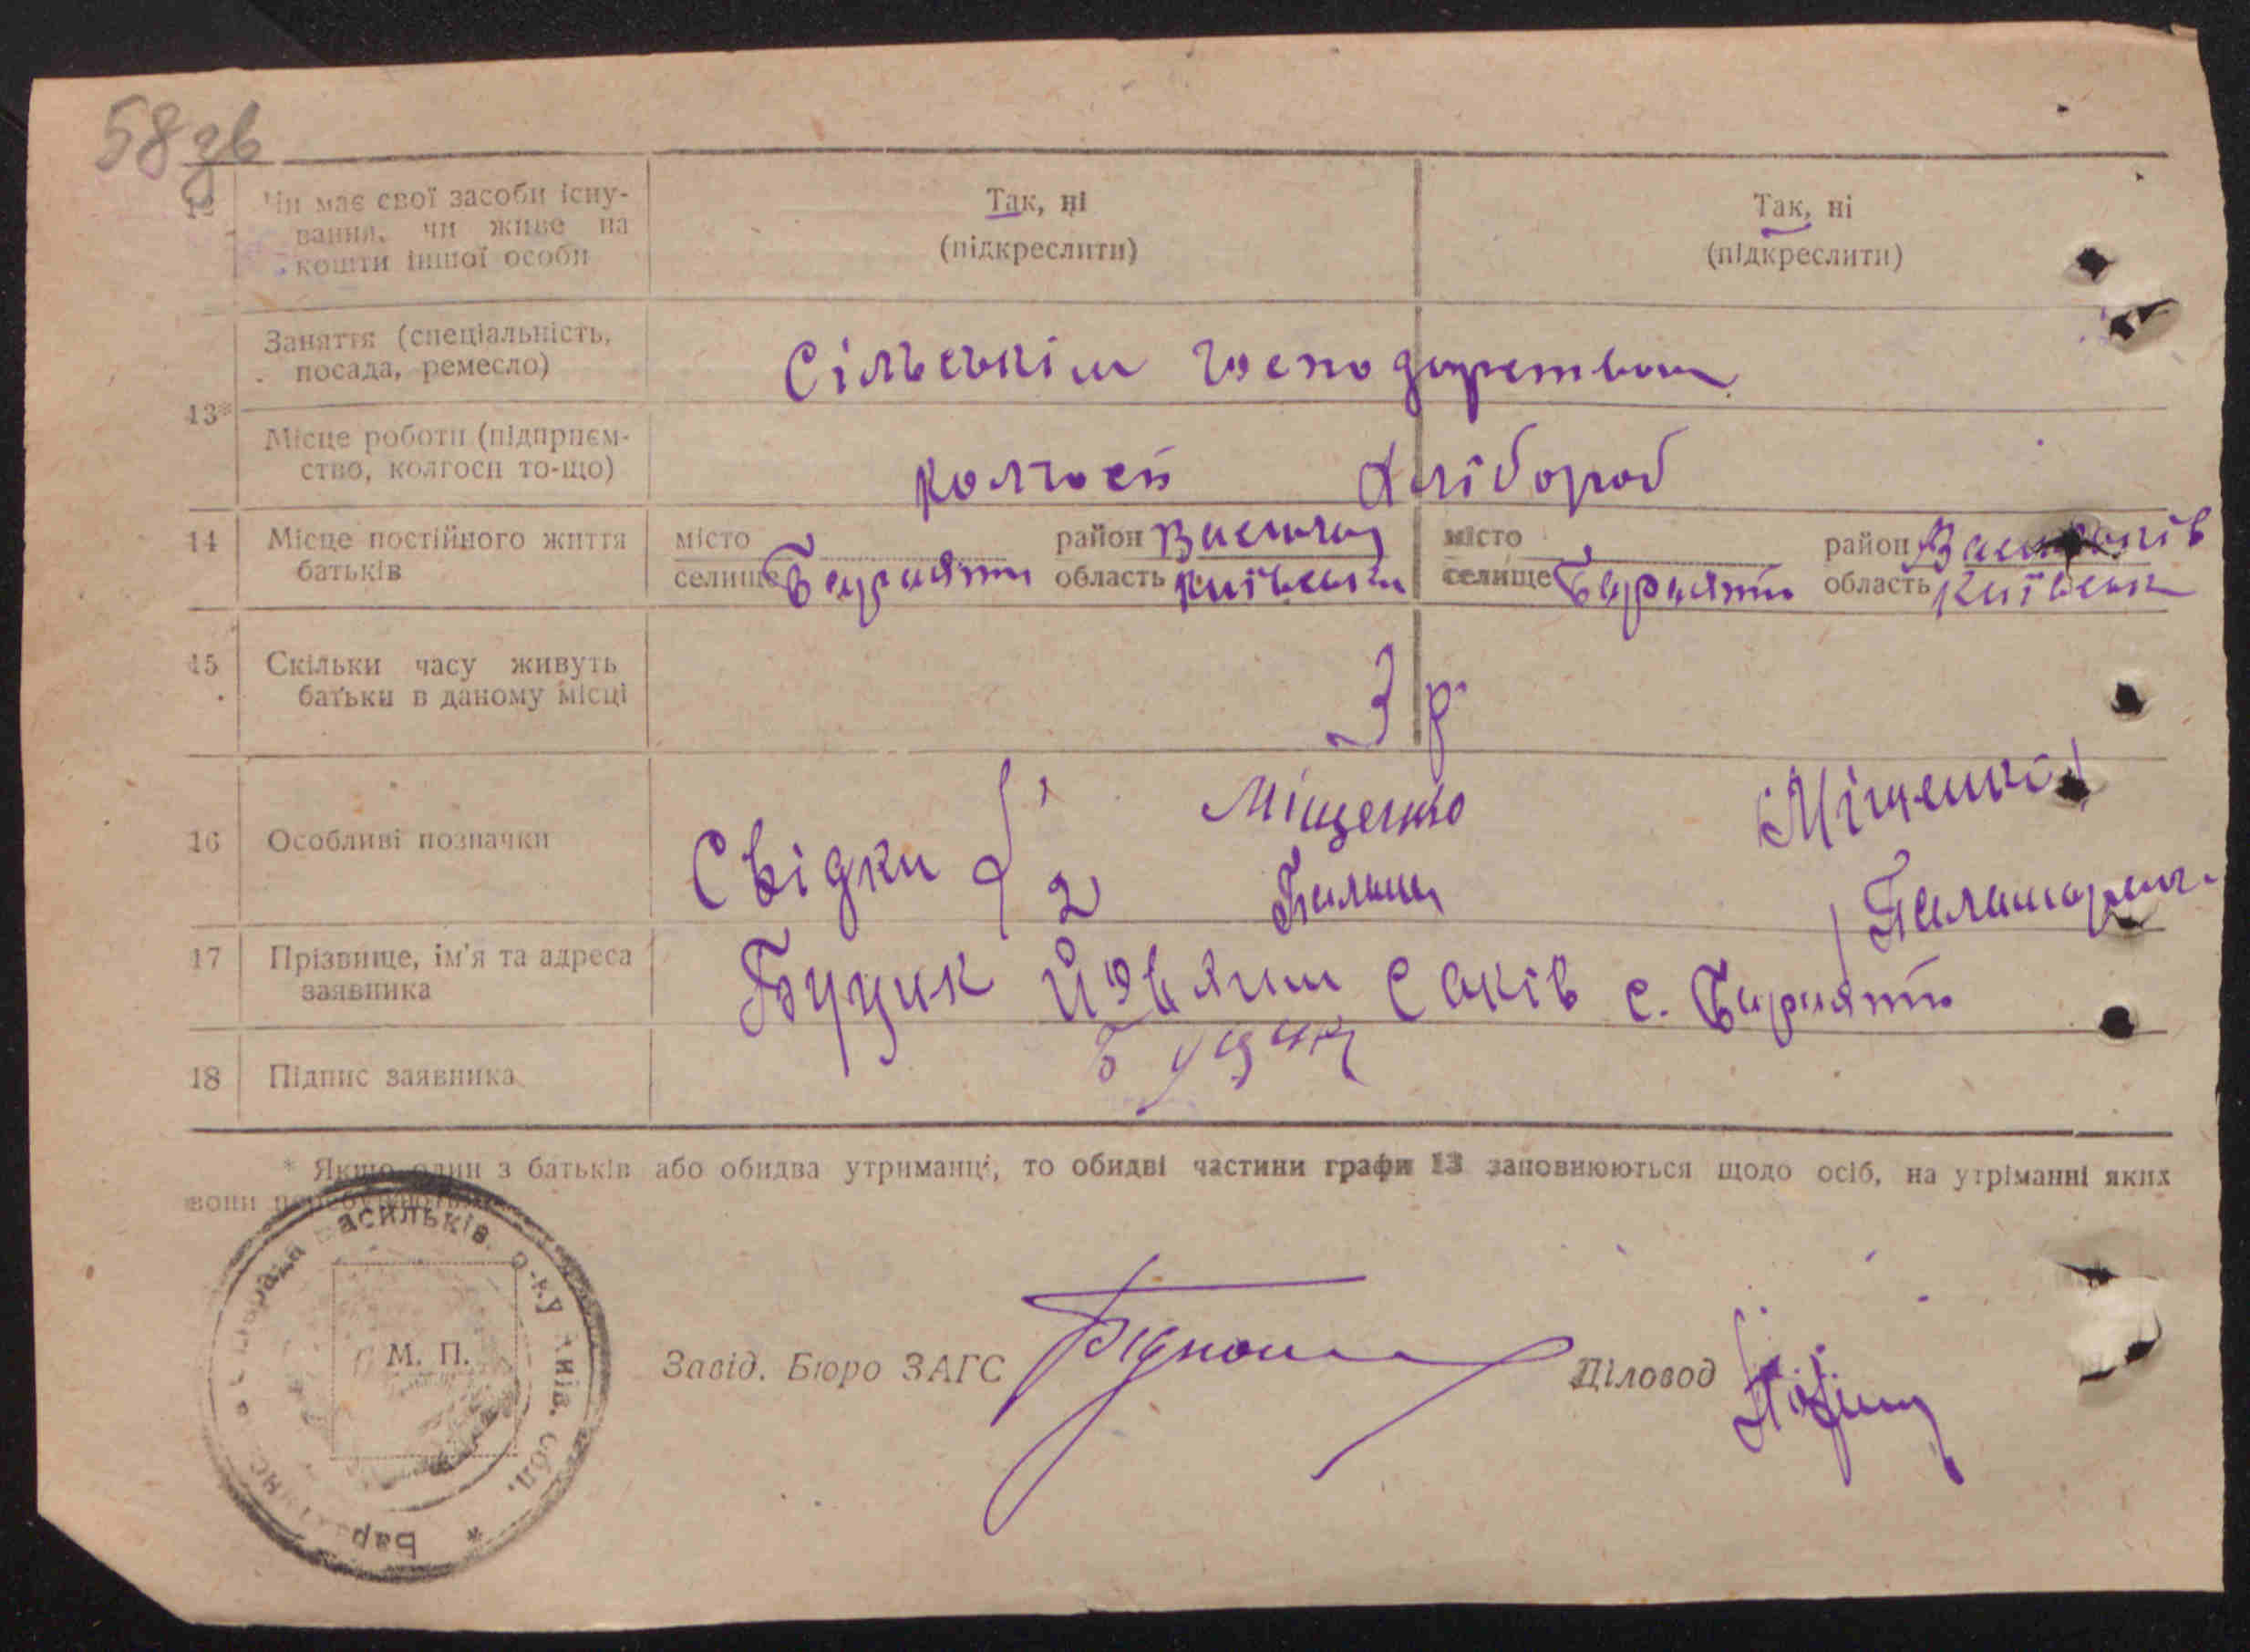 58 зв
12 Чи має свої засоби існу-
вання, чи живе на
кошти іншої особи
Так, ні
(підкреслити)
Так, ні
(підкреслити)
13*
Заняття (спеціальність,
посада, ремесло)
Сільським господарством
Місце роботи (підприєм-
ство, колгосп то-що)
колгосп Хлібороб
14 Місце постійного життя
батьків
місто
селище Барахти
район Васильк
область Київськ
місто
селище Барахти
район Васильків
область Київськ
15 Скільки часу живуть
батьки в даному місці
3 р
16 Особливі позначки
Свідки 1 Міщенко Міщенко
2
17 Прізвище, ім'я та адреса
заявника
Буцик Саків с. Барахти
18 Підпис заявника
Буцик
* Якщо один з батьків або обидва утриманці, то обидві частини графи 13 заповнюються щодо осіб, на утріманні яких
вони перебувають.
М. П.
Васильків. р-ку Київ. обл. * Бар
Завід. Бюро ЗАГС
Діловод